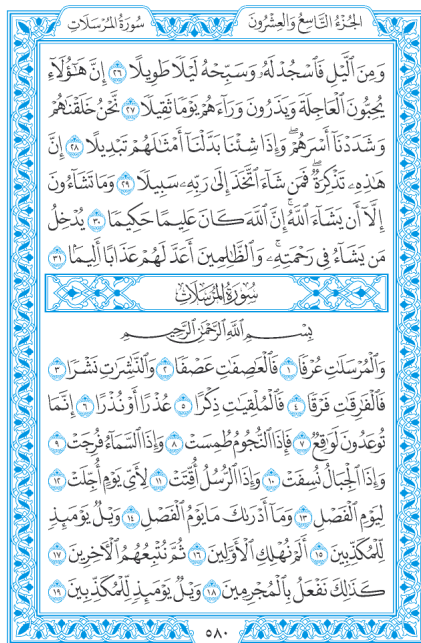 الجُزْءُ التَّاسِعُ وَالعِشْرُونَ سُورَةُ المُرْسَلَات
وَمِنَ ٱلَّيْلِ فَٱسْجُدْ لَهُۥ وَسَبِّحْهُ لَيْلًا طَوِيلًا ٢٦ إِنَّ هَٰٓؤُلَآءِ
يُحِبُّونَ ٱلْعَاجِلَةَ وَيَذَرُونَ وَرَآءَهُمْ يَوْمًا ثَقِيلًا ٢٧ نَّحْنُ خَلَقْنَٰهُمْ
وَشَدَدْنَآ أَسْرَهُمْ ۖ وَإِذَا شِئْنَا بَدَّلْنَآ أَمْثَٰلَهُمْ تَبْدِيلًا ٢٨ إِنَّ
هَٰذِهِۦ تَذْكِرَةٌ ۖ فَمَن شَآءَ ٱتَّخَذَ إِلَىٰ رَبِّهِۦ سَبِيلًا ٢٩ وَمَا تَشَآءُونَ
إِلَّآ أَن يَشَآءَ ٱللَّهُ ۚ إِنَّ ٱللَّهَ كَانَ عَلِيمًا حَكِيمًا ٣٠ يُدْخِلُ
مَن يَشَآءُ فِى رَحْمَتِهِۦ ۚ وَٱلظَّٰلِمِينَ أَعَدَّ لَهُمْ عَذَابًا أَلِيمًۢا ٣١
سُورَةُ المُرْسَلَاتِ
بِسْمِ ٱللَّهِ ٱلرَّحْمَٰنِ ٱلرَّحِيمِ
وَٱلْمُرْسَلَٰتِ عُرْفًا ١ فَٱلْعَٰصِفَٰتِ عَصْفًا ٢ وَٱلنَّٰشِرَٰتِ نَشْرًا ٣
فَٱلْفَٰرِقَٰتِ فَرْقًا ٤ فَٱلْمُلْقِيَٰتِ ذِكْرًا ٥ عُذْرًا أَوْ نُذْرًا ٦ إِنَّمَا
تُوعَدُونَ لَوَٰقِعٌ ٧ فَإِذَا ٱلنُّجُومُ طُمِسَتْ ٨ وَإِذَا ٱلسَّمَآءُ فُرِجَتْ ٩
وَإِذَا ٱلْجِبَالُ نُسِفَتْ ١٠ وَإِذَا ٱلرُّسُلُ أُقِّتَتْ ١١ لِأَىِّ يَوْمٍ أُجِّلَتْ ١٢
لِيَوْمِ ٱلْفَصْلِ ١٣ وَمَآ أَدْرَىٰكَ مَا يَوْمُ ٱلْفَصْلِ ١٤ وَيْلٌ يَوْمَئِذٍ
لِّلْمُكَذِّبِينَ ١٥ أَلَمْ نُهْلِكِ ٱلْأَوَّلِينَ ١٦ ثُمَّ نُتْبِعُهُمُ ٱلْءَاخِرِينَ ١٧
كَذَٰلِكَ نَفْعَلُ بِٱلْمُجْرِمِينَ ١٨ وَيْلٌ يَوْمَئِذٍ لِّلْمُكَذِّبِينَ ١٩
٥٨٠